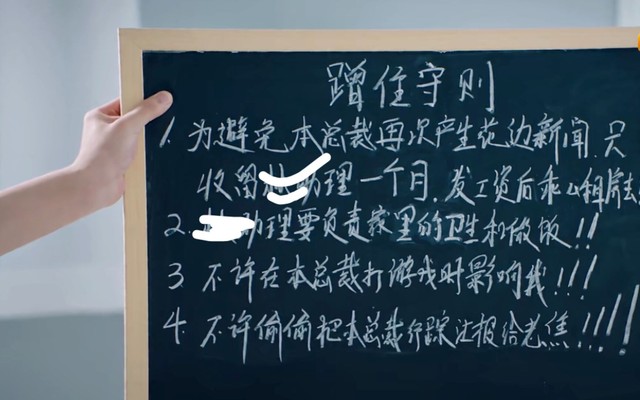 蹭住守则
1. 为避免本总裁再次产生花边新闻, 只
收留 助理一个月. 发工资后乖乖租房去
2. 助理要负责家里的卫生和做饭!!
3 不许在本总裁打游戏时影响我!!!
4. 不许偷偷把本总裁行踪汇报给老焦!!!!